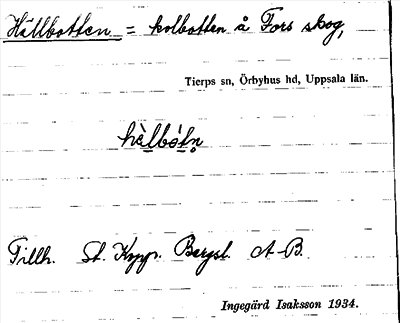 Hällbotten = kolbotten å Fors skog,
Tierps sn, Örbyhus hd, Uppsala län.
hàlbótn̥
Tillh. St. Kopp. Bergsl. A-B.
Ingegärd Isaksson 1934.